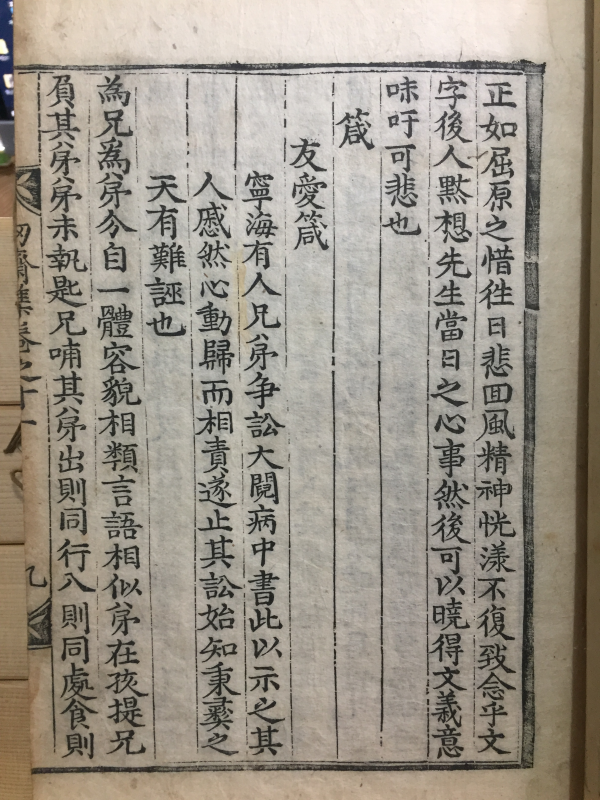 正如屈原之惜徃日悲囬風精神恍漾不復致念乎文
字後人黙想先生當日之心事然後可以曉得文義意
味吁可悲也
箴
友愛箴
寧海有人兄弟爭訟大鬩病中書此以示之其
人慼然心動歸而相責遂止其訟始知秉彛之
天有難誣也
為兄為弟分自一體容貌相類言語相似弟在孩提兄
負其弟弟未執匙兄哺其弟出則同行入則同處食則
齋集卷之十一
九